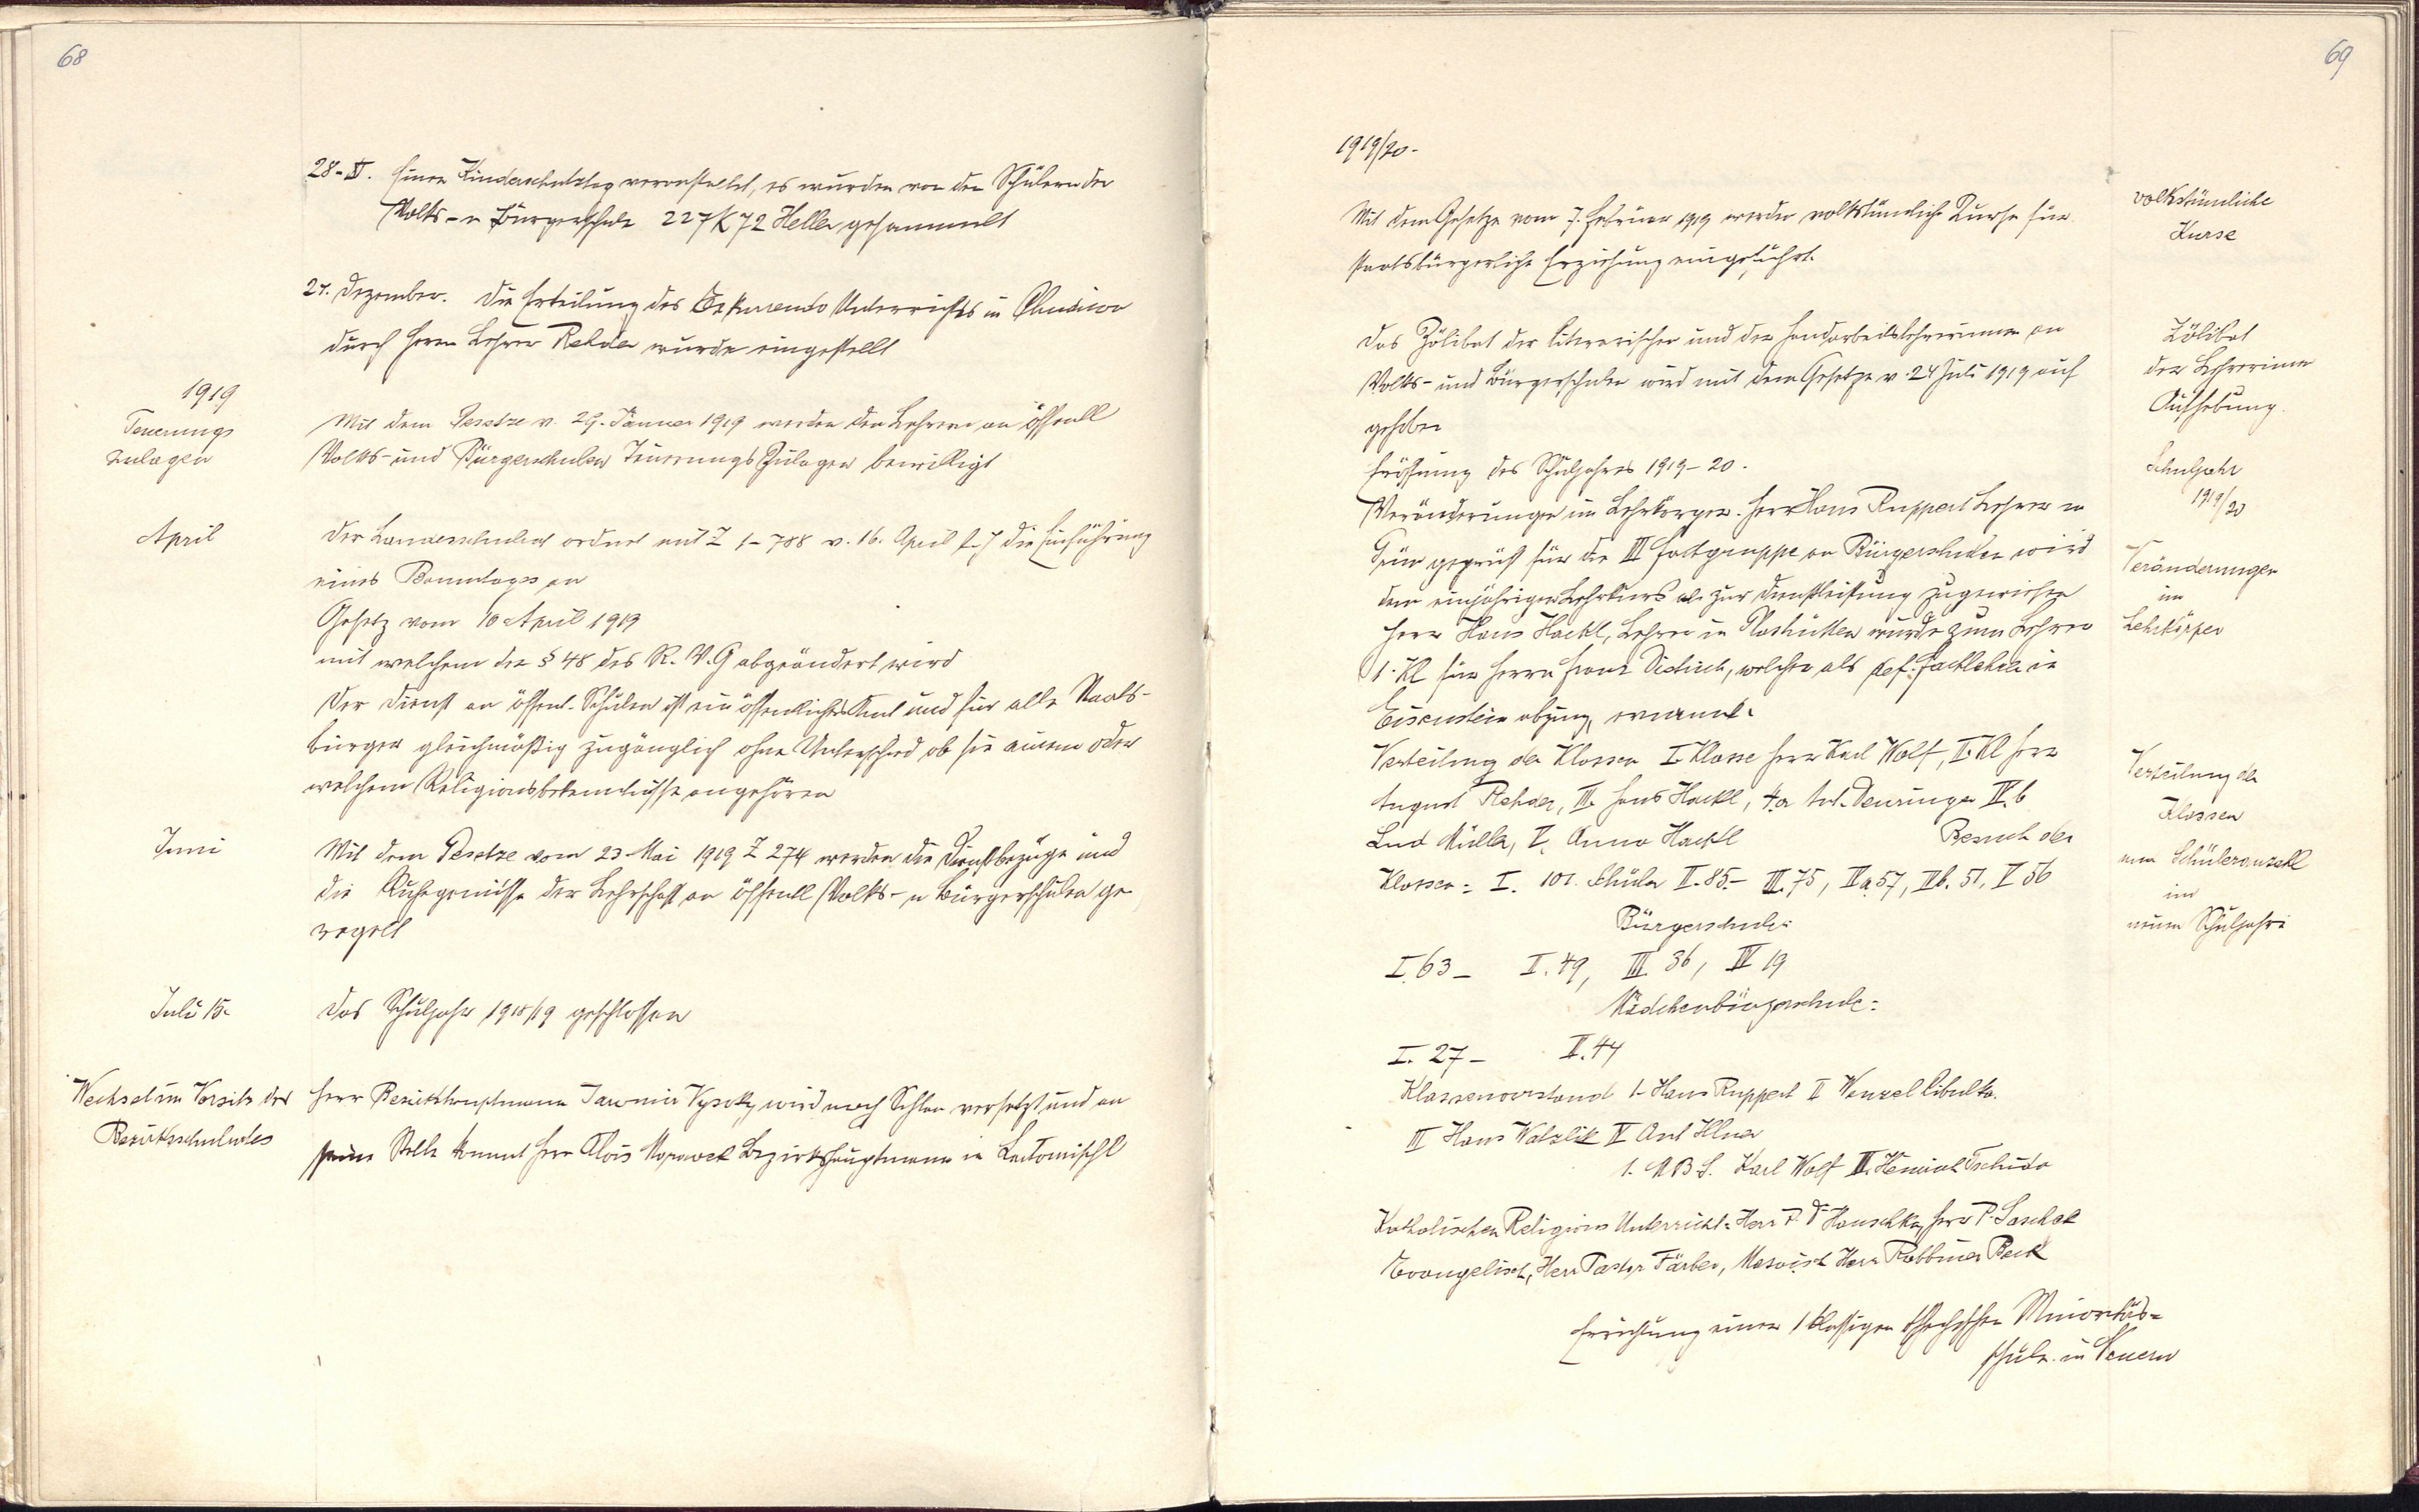 68
28-XI. Einen Kinderschutztag veranstaltet, es wurden von den Schülern der
Volks- u Bürgerschule 227 K 72 Heller gesammelt
21. Dezember. Die Erteilung des Exkurendo Unterrichts in Chudiwa
durch Herrn Lehrer Rehder wurde eingestellt
1919
Teuerungs
zulagen
Mit dem Gesetze v. 29. Jänner 1919 werden den Lehrern an öffentl
Volks- und Bürgerschulen Teuerungs Zulagen bewilligt
April
Der Landesschulrat ordnet mit Z 1-788 v. 16. April l. J die Einführung
eines Baumtages an
Gesetz vom 10 April 1919
mit welchem der § 48 des R. V. G abgeändert wird
Der Dienst an öffent. Schulen ist ein öffentliches Amt und für alle Staats-
bürger gleichmäßig zugänglich ohne Unterschied ob sie einem oder
welchem Religionsbekenntnisse angehören
Juni
Mit dem Gesetze vom 23 Mai 1919 Z 274 werden die Dienstbezüge und
die Ruhegenüsse der Lehrschaft an öffentl Volks- u Bürgerschulen ge
regelt
Juli 15.
Das Schuljahr 1918/19 geschlossen
Wechsel im Vorsitz des
Bezirksschulrates
Herr Bezirkshauptmann Jaromir Vysoky wird nach Schlan versetzt und an
seine Stelle kommt Herr Alois Moravek Bezirkshauptmann in Leitomischl
69
1919/20.
Mit dem Gesetze vom 7. Februar 1919 werden volkstümliche Kurse für
staatsbürgerliche Erziehung eingeführt.
volkstümliche
Kurse
Das Zölibat der literarischen und der Handarbeitslehrerinnen an
Volks- und Bürgerschulen wird mit dem Gesetze v. 24 Juli 1919 auf
gehoben
Zölibat
der Lehrerinnen
Aufhebung.
Eröffnung des Schuljahres 1919-20.
Schuljahr
1919/20
Veränderungen im Lehrkörper. Herr Hans Ruppert Lehrer in
Grün geprüft für die III Fachgruppe an Bürgerschulen wird
dem einjährigen Lehrkurs als zur Dienstleistung zugewiesen
Herr Hans Hackl, Lehrer in Glashütten wurde zum Lehrer
1. Kl für Herrn Franz Dietrich, welcher als def. Fachlehrer in
Eisenstein abging, ernannt.
Veränderungen
im
Lehrkörper
Verteilung der Klassen I. Klasse Herr Karl Wolf, II. Kl Herr
August Rehder, III. Hans Hackl, 4.a Ant. Deuringer IV. b
Lud Müller, V. Anna Hackl Besuch der
Klassen: I. 101. Schüler II. 85.- III. 75, IVa 57, IVb. 51, V 56
Verteilung der
Klassen
nun Schüleranzahl
im
neuen Schuljahre
Bürgerschule:
I. 63 - II. 49, III. 36, IV 19
Mädchenbürgerschule:
I. 27 - II. 44
Klassenvorstand 1. Hans Ruppert II Wenzel Cibulka.
III Hans Watzlik IV Ant Illner
1. M B S. Karl Wolf II. Heinrich Tschida
Katholischen Religions Unterricht: Herr P. Dr Hauschka, Herr P. Laschek
Evangelisch, Herr Pastor Färber, Mosaisch Herr Rabbiner Beck
Errichtung einer 1 klassigen tschechischen Minoritäts-
schule in Neuern